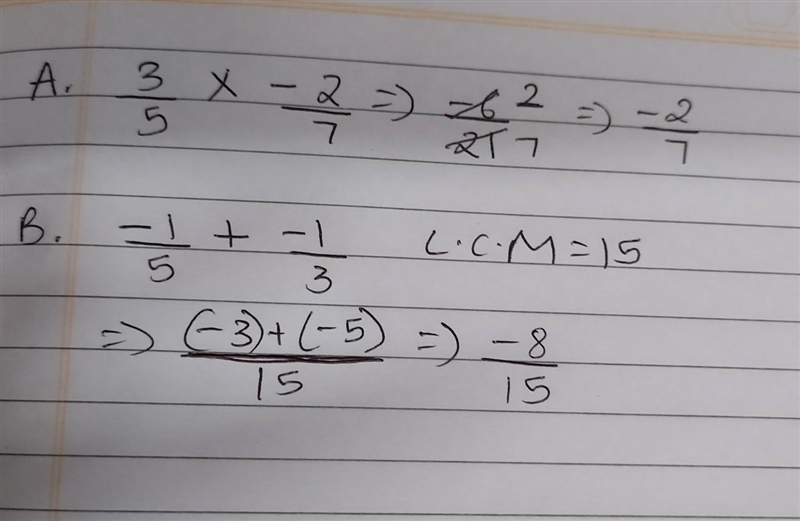 A. 3/5 × -2/7 => -6 2/21 7 => -2/7
B. -1/5 + -1/3 L.C.M = 15
=> (-3)+(-5)/15 => -8/15